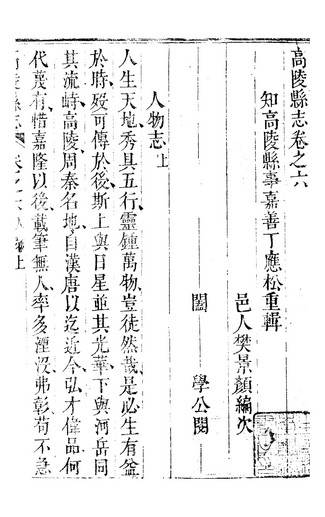 高陵縣志卷之六
知高陵縣事嘉善丁應松重輯
邑人樊景顏編次
闔學公閱
人物志上
人生天地秀具五行靈鍾萬物豈徒然哉是必生有益
於時歿可傳於後斯上與日星並其光華下與河岳同
其流峙高陵周秦名地自漢唐以迄近今弘才偉品何
代蔑有惜嘉隆以後載筆無人率多湮沒弗彰苟不急
高陵縣志 卷之六 上